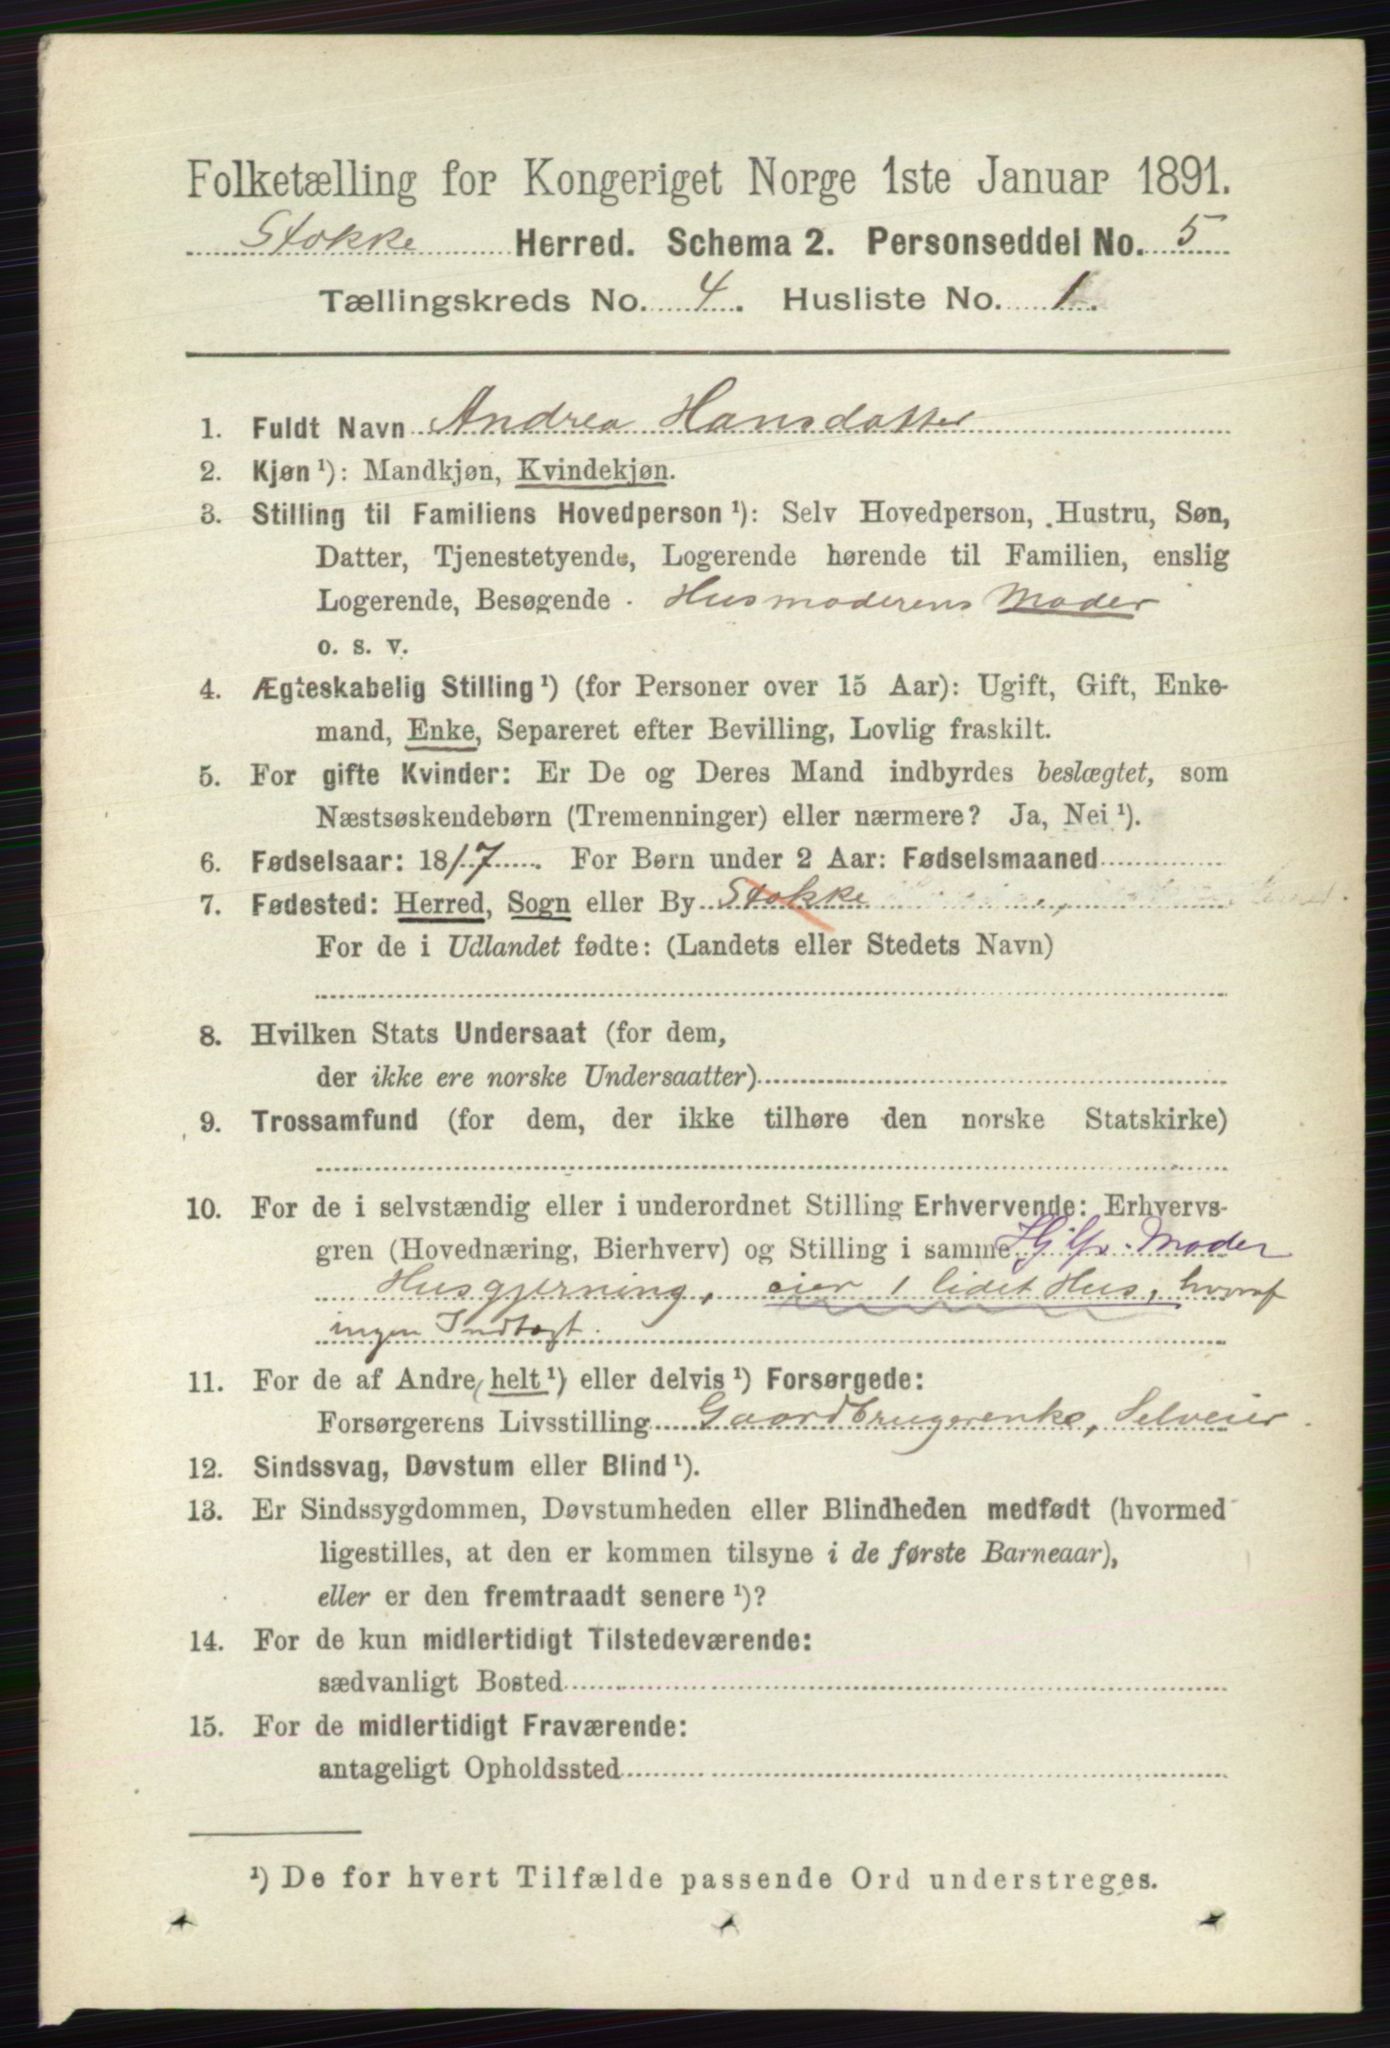 Folketælling for Kongeriget Norge 1ste Januar 1891.
Stokke Herred. Schema 2. Personseddel No. 5
Tællingskreds No. 4. Husliste No. 1.
1. Fuldt Navn Andrea Hansdatter
2. Kjøn ¹): Mandkjøn, Kvindekjøn.
3. Stilling til Familiens Hovedperson ¹): Selv Hovedperson, Hustru, Søn,
Datter, Tjenestetyende, Logerende hørende til Familien, enslig
Logerende, Besøgende. Husmoderens Moder
o. s. v.
4. Ægteskabelig Stilling ¹) (for Personer over 15 Aar): Ugift, Gift, Enke-
mand, Enke, Separeret efter Bevilling, Lovlig fraskilt.
5. For gifte Kvinder: Er De og Deres Mand indbyrdes beslægtet, som
Næstsøskendebørn (Tremenninger) eller nærmere? Ja, Nei ¹).
6. Fødselsaar: 1817. For Børn under 2 Aar: Fødselsmaaned
7. Fødested: Herred, Sogn eller By Stokke
For de i Udlandet fødte: (Landets eller Stedets Navn)
8. Hvilken Stats Undersaat (for dem,
der ikke ere norske Undersaatter)
9. Trossamfund (for dem, der ikke tilhøre den norske Statskirke)
10. For de i selvstændig eller i underordnet Stilling Erhvervende: Erhvervs-
gren (Hovednæring, Bierhverv) og Stilling i samme Moder
Husgjerning, eier 1 lidet Hus, hvoraf
ingen Indtægt.
11. For de af Andre (helt ¹) eller delvis ¹) Forsørgede:
Forsørgerens Livsstilling Gaardbrugerenke, Selveier.
12. Sindssvag, Døvstum eller Blind ¹).
13. Er Sindssygdommen, Døvstumheden eller Blindheden medfødt (hvormed
ligestilles, at den er kommen tilsyne i de første Barneaar),
eller er den fremtraadt senere ¹)?
14. For de kun midlertidigt Tilstedeværende:
sædvanligt Bosted
15. For de midlertidigt Fraværende:
antageligt Opholdssted
¹) De for hvert Tilfælde passende Ord understreges.